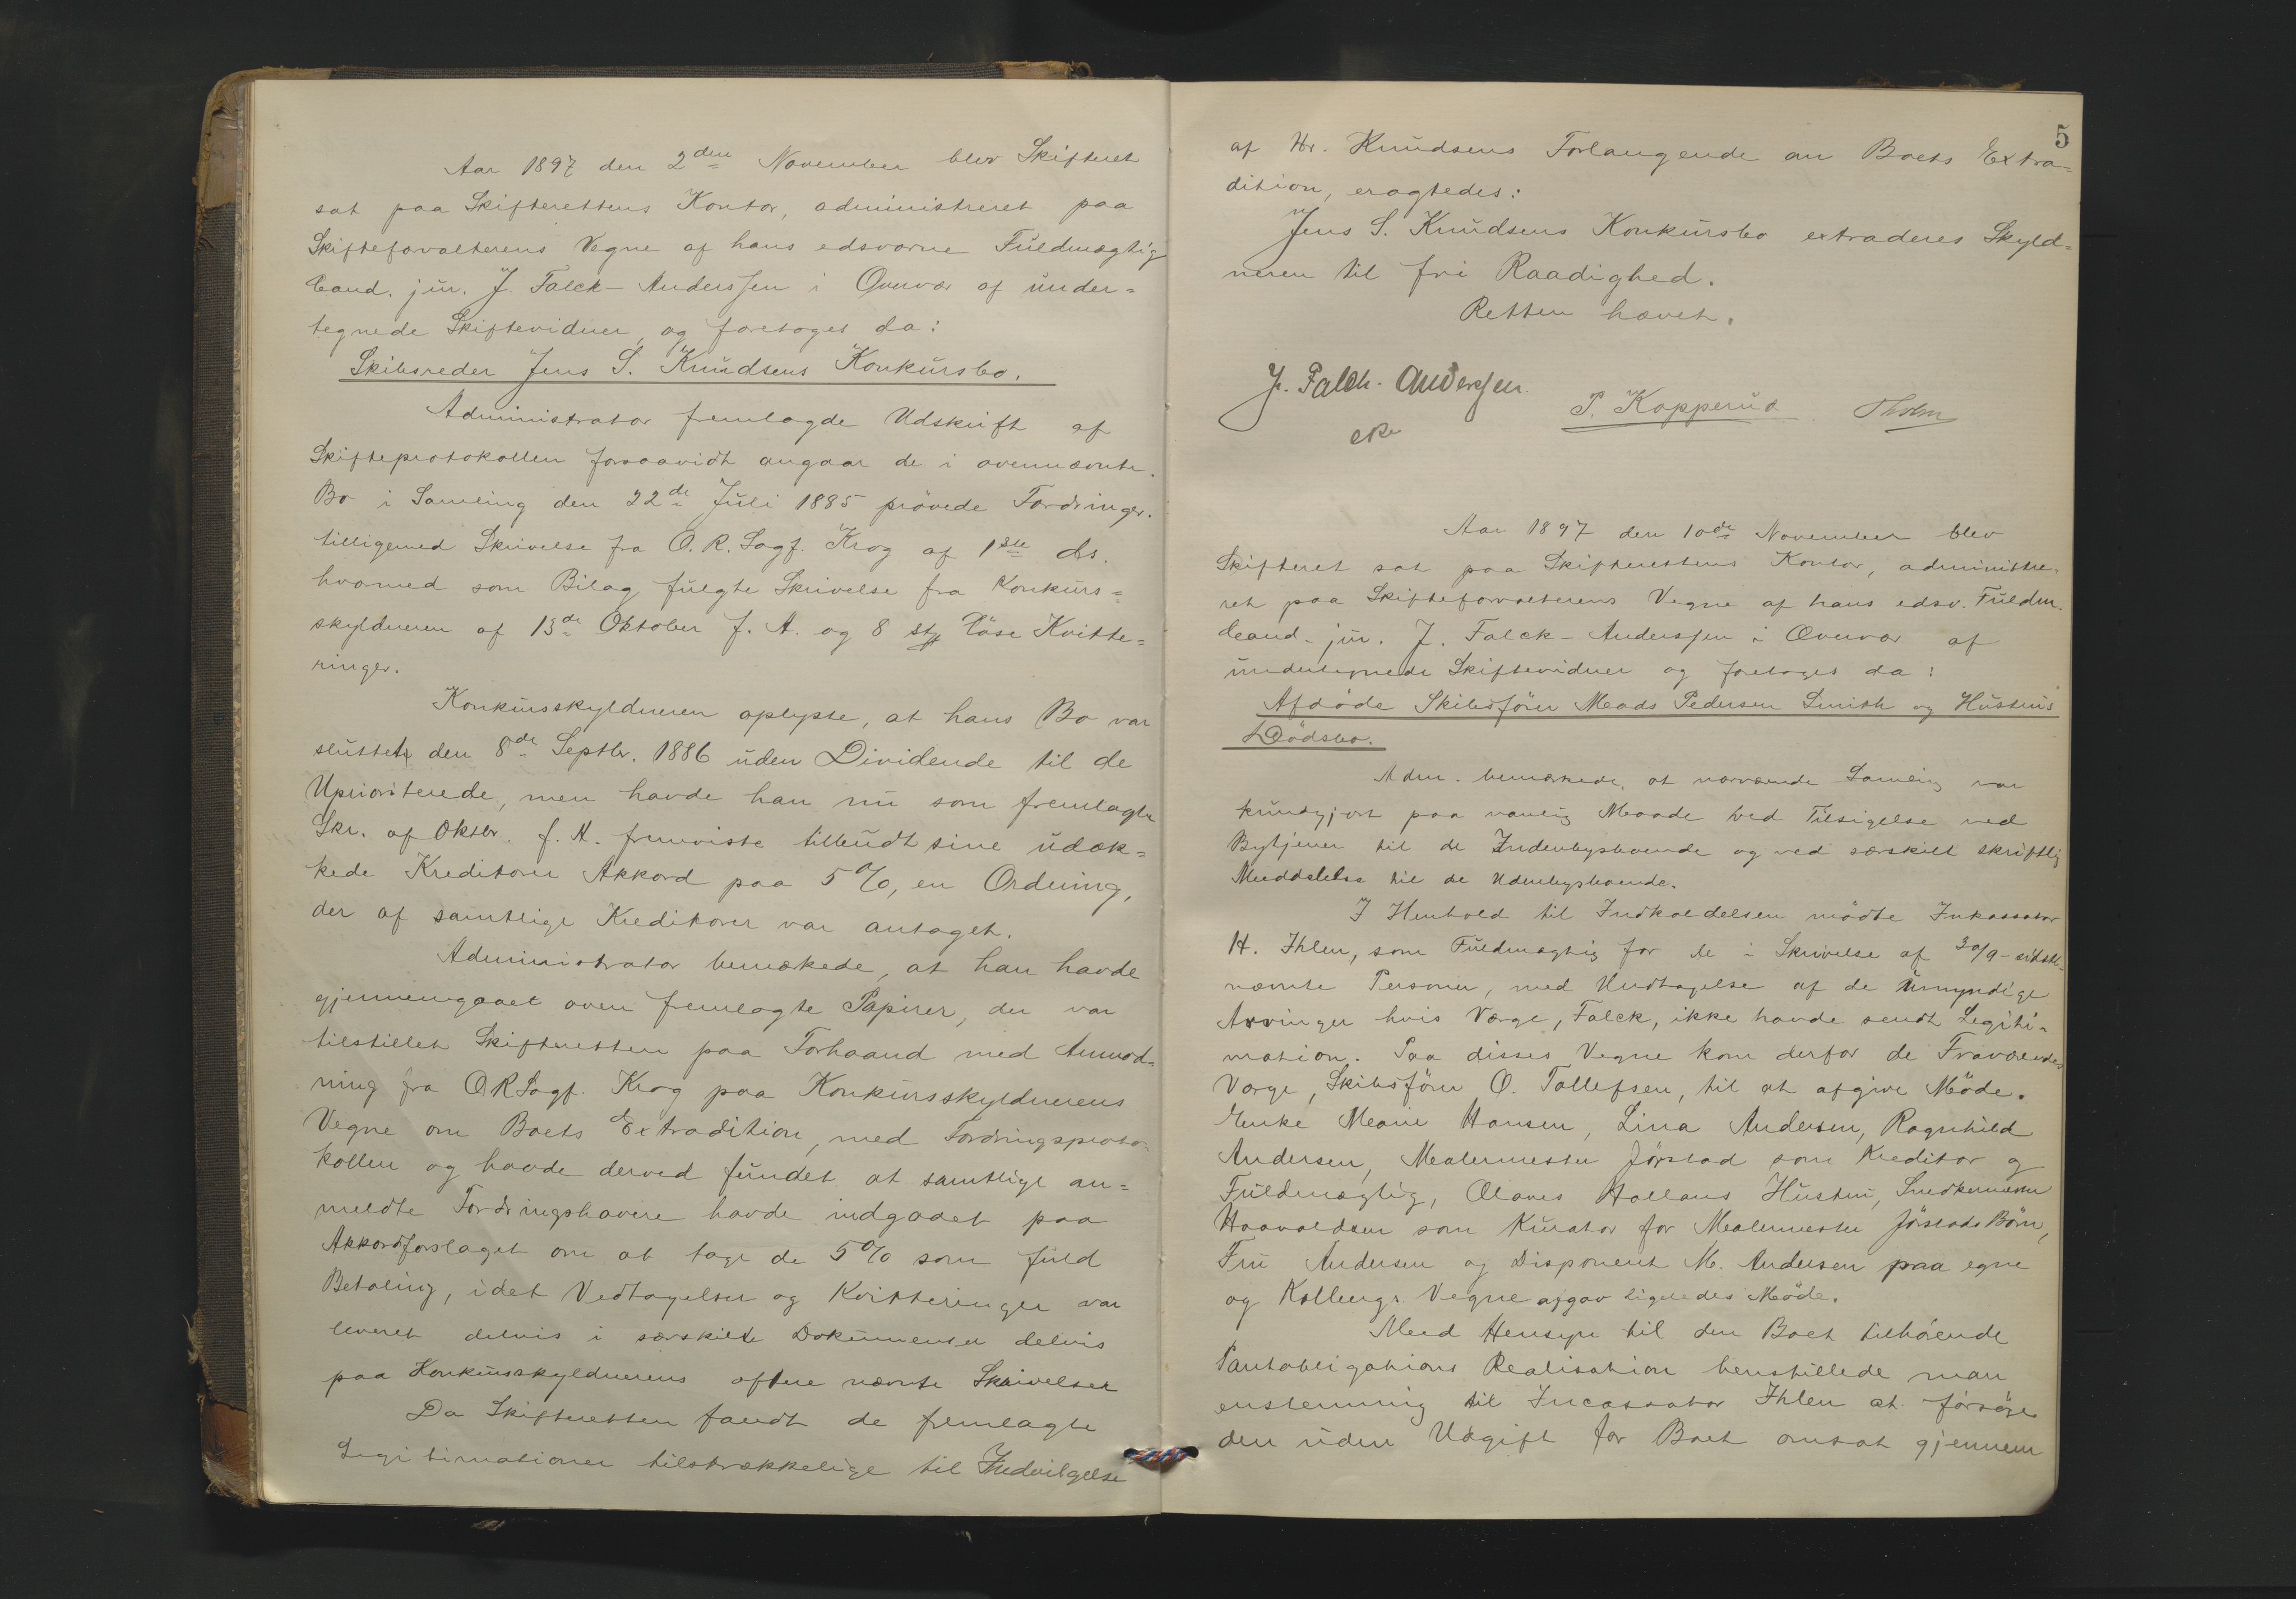 Aar 1897 den 2den November blev Skifteret
sat paa Skifterettens Kontor, administreret paa
Skifteforvalterens Vegne af hans edsvorne Fuldmægtig
Cand. jur. J. Falck-Anderssen i Overvær af under=
tegnede Skiftevidner, og foretoges da:
Skibsreder Jens S. Knudsens Konkursbo.
Administrator fremlagde Udskrift af
Skifteprotokollen forsaavidt angaar de i ovennævnte
Bo i Samling den 22de Juli 1885 prövede Fordringer.
tilligemed Skrivelse fra O.R.Sagf. Krog af 1ste ds.
hvormed som Bilag fulgte Skrivelse fra Konkurs=
skyldneren af 13de Oktober f. A. og 8 stk löse Kvitte=
ringer.
Konkursskyldneren oplyste, at hans Bo var
sluttet den 8de Septbr. 1886 uden Dividende til de
Uprioriterede, men havde han nu som fremlagte
Skr. af Oktbr. f. A. fremviste tilbudt sine udæk=
kede Kreditorer Akkord paa 5%, en Ordning,
der af samtlige Kreditorer var antaget.
Administrator bemærkede, at han havde
gjennemgaaet oven fremlagte Papirer, der var
tilstillet Skifteretten paa Forhaand med Anmod=
ning fra ORSagf. Krog paa Konkursskyldnerens
Vegne om Boets Extradition, med Fordringsproto=
kollen og havde derved fundet at samtlige an=
meldte Fordringshavere havde indgaaet paa
Akkordforslaget om at tage de 5% som fuld
Betaling, idet Vedtagelser og Kvitteringer var
leveret delvis i særskilte Dokumenter delvis
paa Konkursskyldnerens oftere nævnte Skrivelser
Da Skifteretten fandt de fremlagte
Legitimationer tilstrækkelige til Indvilgelse
5
af Hr. Knudsens Forlangende om Boets Extra=
dition, eragtedes:
Jens S. Knudsens Konkursbo extraderes Skyld=
neren til fri Raadighed.
Retten hævet.
J. Falck-Anderssen.
P. Kopperud
Aar 1897 den 10de November blev
Skifteret sat paa Skifterettens Kontor, administre=
ret paa Skifteforvalterens Vegne af hans edsv. Fuldm.
Cand. jur. J. Falck-Anderssen i Overvær af
undertegnede Skiftevidner og foretoges da:
Afdöde Skibsförer Mads Pedersen Smith og Hustrus
Dödsbo.
Adm. bemærkede, at nærværende Samling var
kundgjort paa vanlig Maade ved Tilsigelse ved
Bytjener til de Indenbysboende og ved særskilt skriftlig
Meddelelse til de Udenbysboende.
I Henhold til Indkaldelsen mödte Inkassator
H. Ihlen, som Fuldmægtig for de i Skrivelse af 30/9 sidst=
nævnte Personer, med Undtagelse af de Umyndige
Arvinger hvis Værge, Falck, ikke havde sendt Legiti=
mation. Paa disses Vegne kom derfor de Fraværendes
Værge, Skibsförer O. Tallefsen, til at afgive Möde.
Enke Marie Hansen, Lina Andersen, Ragnhild
Andersen, Malermester Jörstad som Kreditor og
Fuldmægtig, Olaves Hollans Hustru, Snedkermester
Haavaldsen som Kurator for Malermester Jörstads Börn,
Fru Andersen og Disponent M. Andersen paa egne
og Kollengs Vegne afgav ligeledes Möde.
Med Hensyn til den Boet tilhörende
Pantobligations Realisation henstillede man
enstemmig til Incassator Ihlen at forsöge
den uden Udgift for Boet omsat gjennem